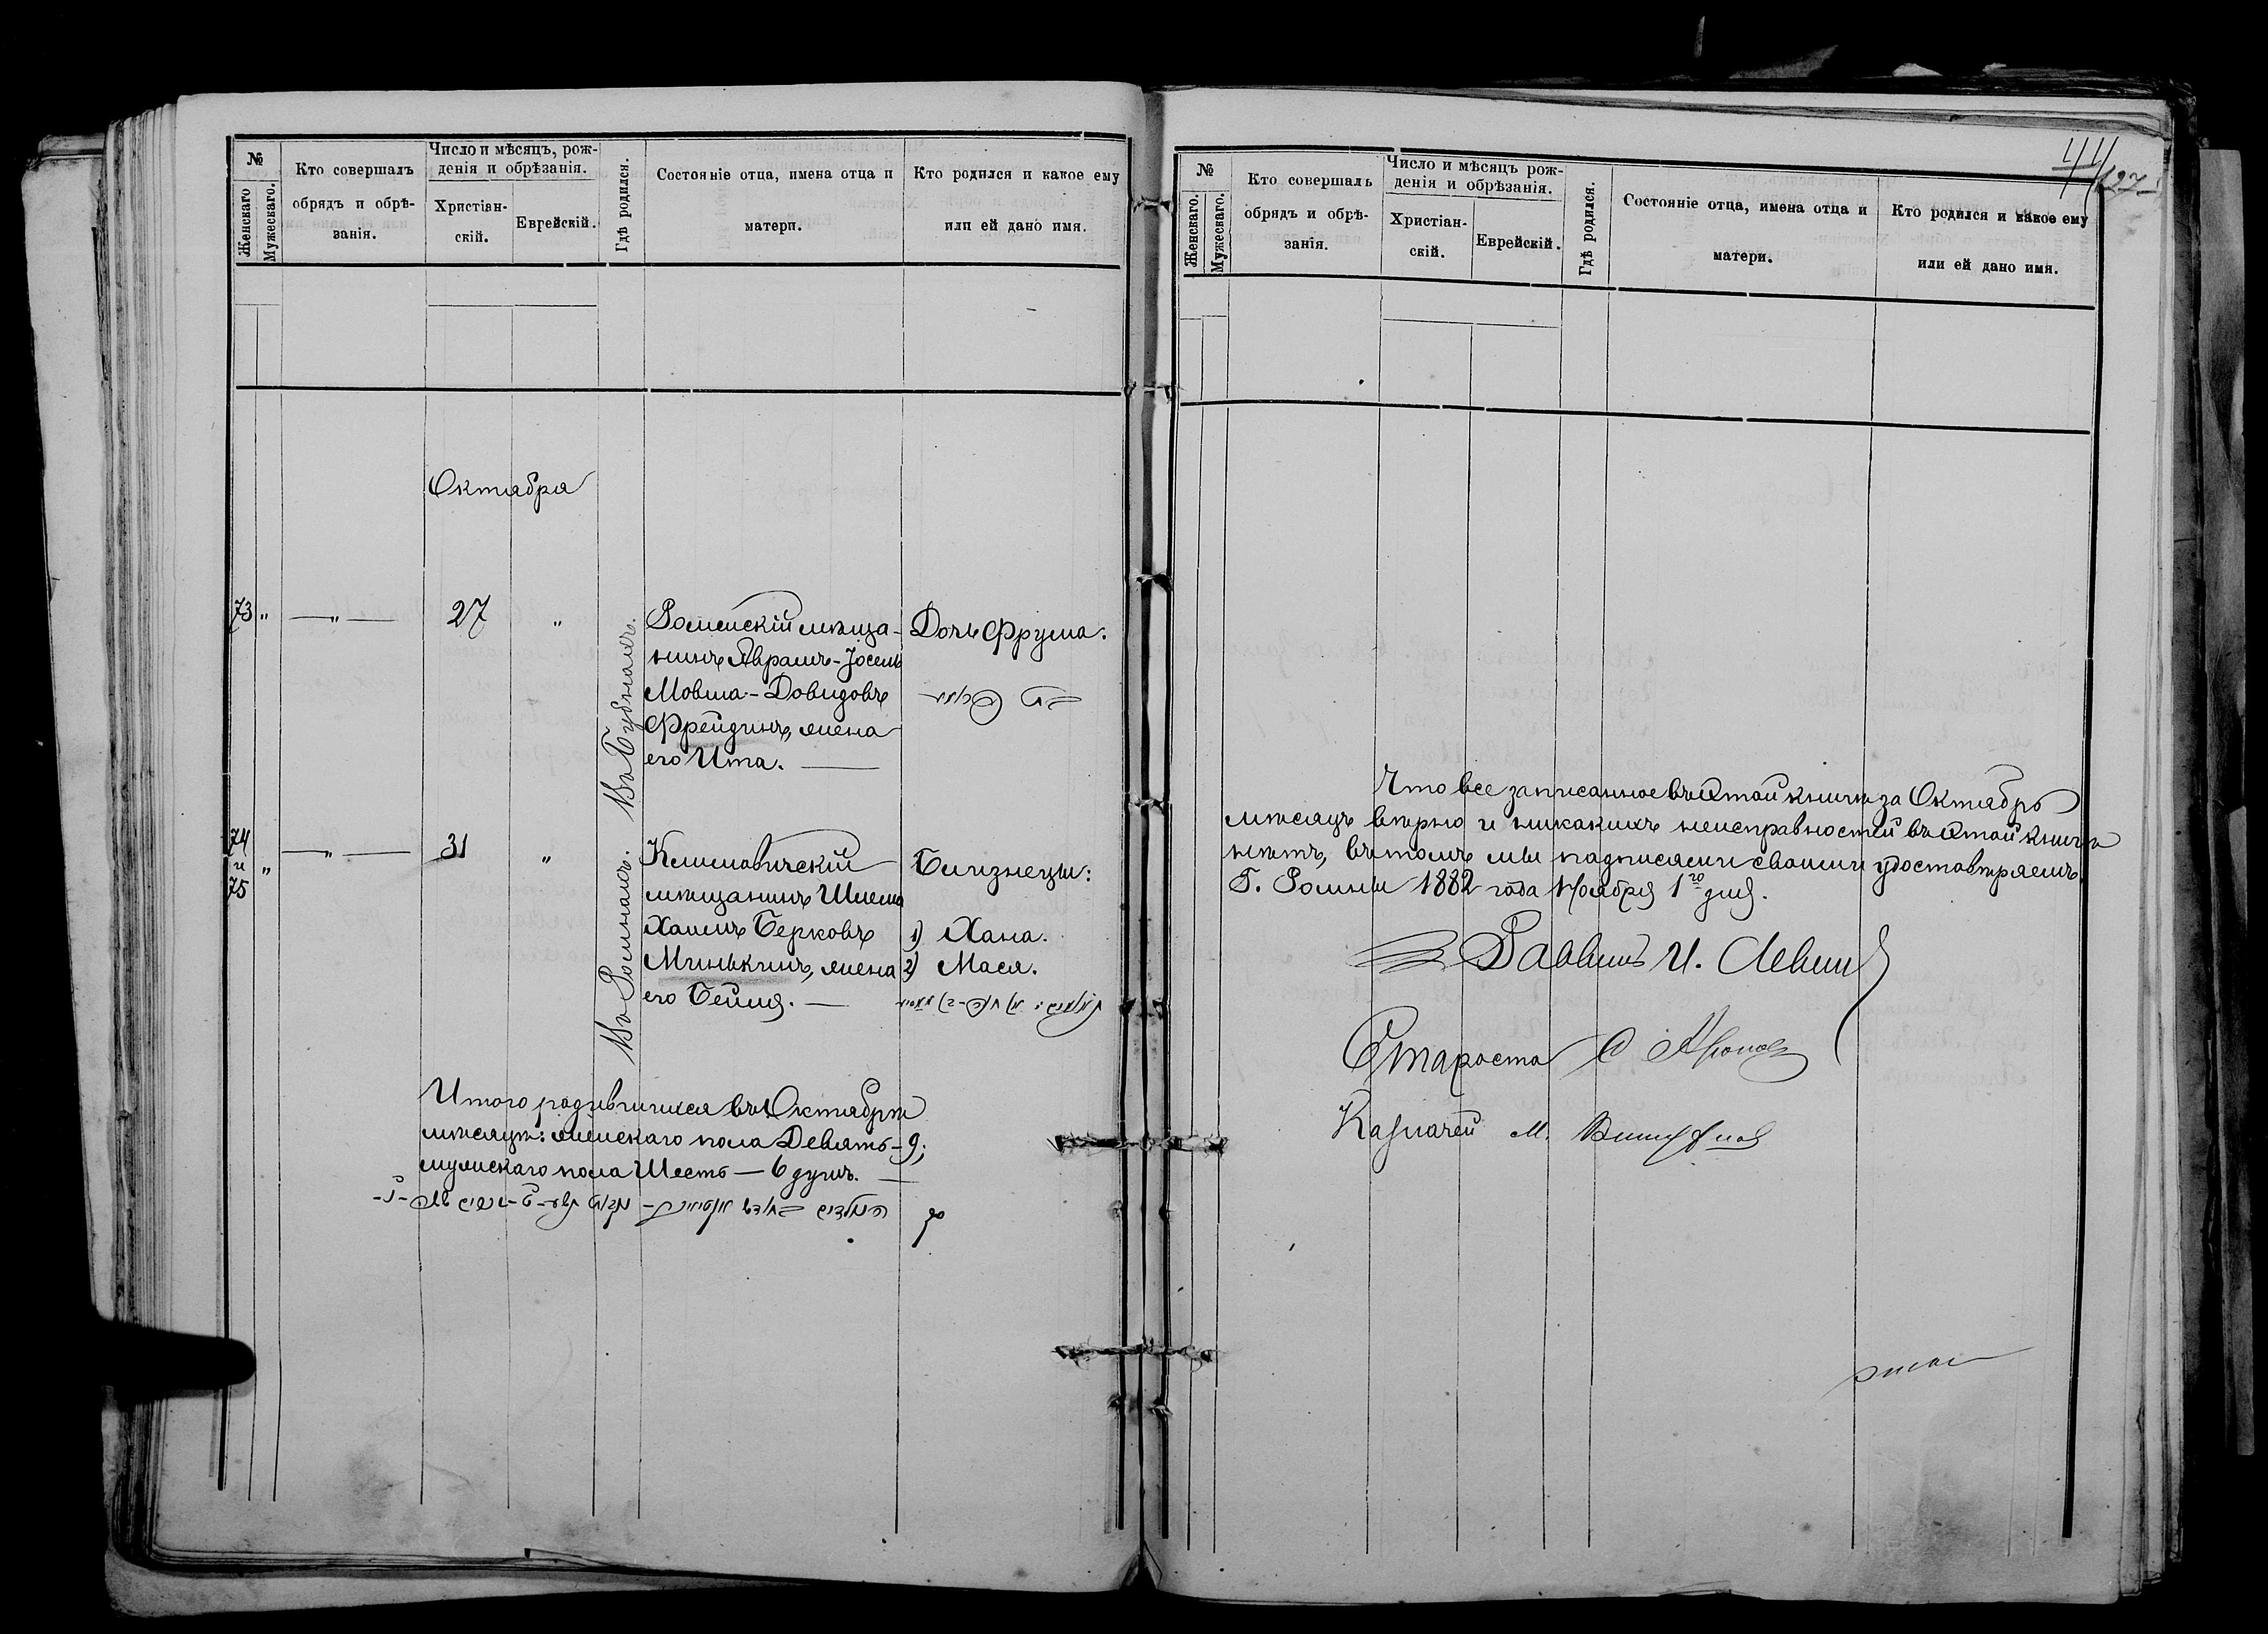 №
Женскаго
Мужескаго.
Кто совершалъ
обрядъ и обрѣ-
занія.
Число и мѣсяцъ, рож-
денія и обрѣзанія.
Христіан-
скій.
Еврейскій.
Гдѣ родился.
Состояніе отца, имена отца и
матери.
Кто родился и какое ему
или ей дано имя.
Октября
73 " — " — 27 "
Въ Бубнахъ.
Роменскій мѣща-
нинъ Аврамъ-Іосель
Мовша-Довидовъ
Фрейдинъ, жена
его Ита. —
Дочь Фрума.
74
и
75
" — " — 31 "
Въ Ромнахъ.
Климовичскій
мѣщанинъ Шлема
Хаимъ Берковъ
Минькинъ, жена
его Бейля. —
Близнецы:
1) Хана.
2) Мася.
Итого родившихся въ Октябрѣ
мѣсяцѣ: женскаго пола Девять – 9;
мужскаго пола Шесть — 6 душъ. —
44
127
№
Женскаго.
Мужескаго.
Кто совершалъ
обрядъ и обрѣ-
занія.
Число и мѣсяцъ рож-
денія и обрѣзанія.
Христіан-
скій.
Еврейскій.
Гдѣ родился.
Состояніе отца, имена отца и
матери.
Кто родился и какое ему
или ей дано имя.
Что все записанное въ этой книгѣ за Октябрь
мѣсяцъ вѣрно и никакихъ неисправностей въ этой книгѣ
нѣтъ, въ томъ мы подписями своими удостовѣряемъ
Г. Ромны 1882 года Ноября 1го дня.
Раввинъ И. Левин
Староста С Аронов
Казначей М.